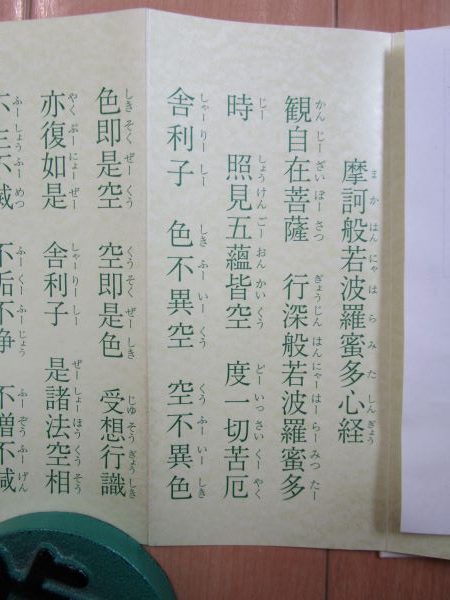 ま か はん にゃ は ら み た しん ぎょう
摩訶般若波羅蜜多心経
かん じー ざい ぼー さつ ぎょう じん はん にゃー はー らー みつ たー
観自在菩薩 行深般若波羅蜜多
じー しょう けん ごー おん かい くう どー いっ さい くー やく
時 照見五蘊皆空 度一切苦厄
しゃー りー しー しき ふー いー くう くう ふー いー しき
舎利子 色不異空 空不異色
しき そく ぜー くう くう そく ぜー しき じゅ そう ぎょう しき
色即是空 空即是色 受想行識
やく ぶー にょー ぜー しゃー りー しー ぜー しょー ほう くう そう
亦復如是 舎利子 是諸法空相
ふー しょう ふー めつ ふー くー ふー じょう ふー ぞう ふー げん
不生不滅 不垢不浄 不増不減